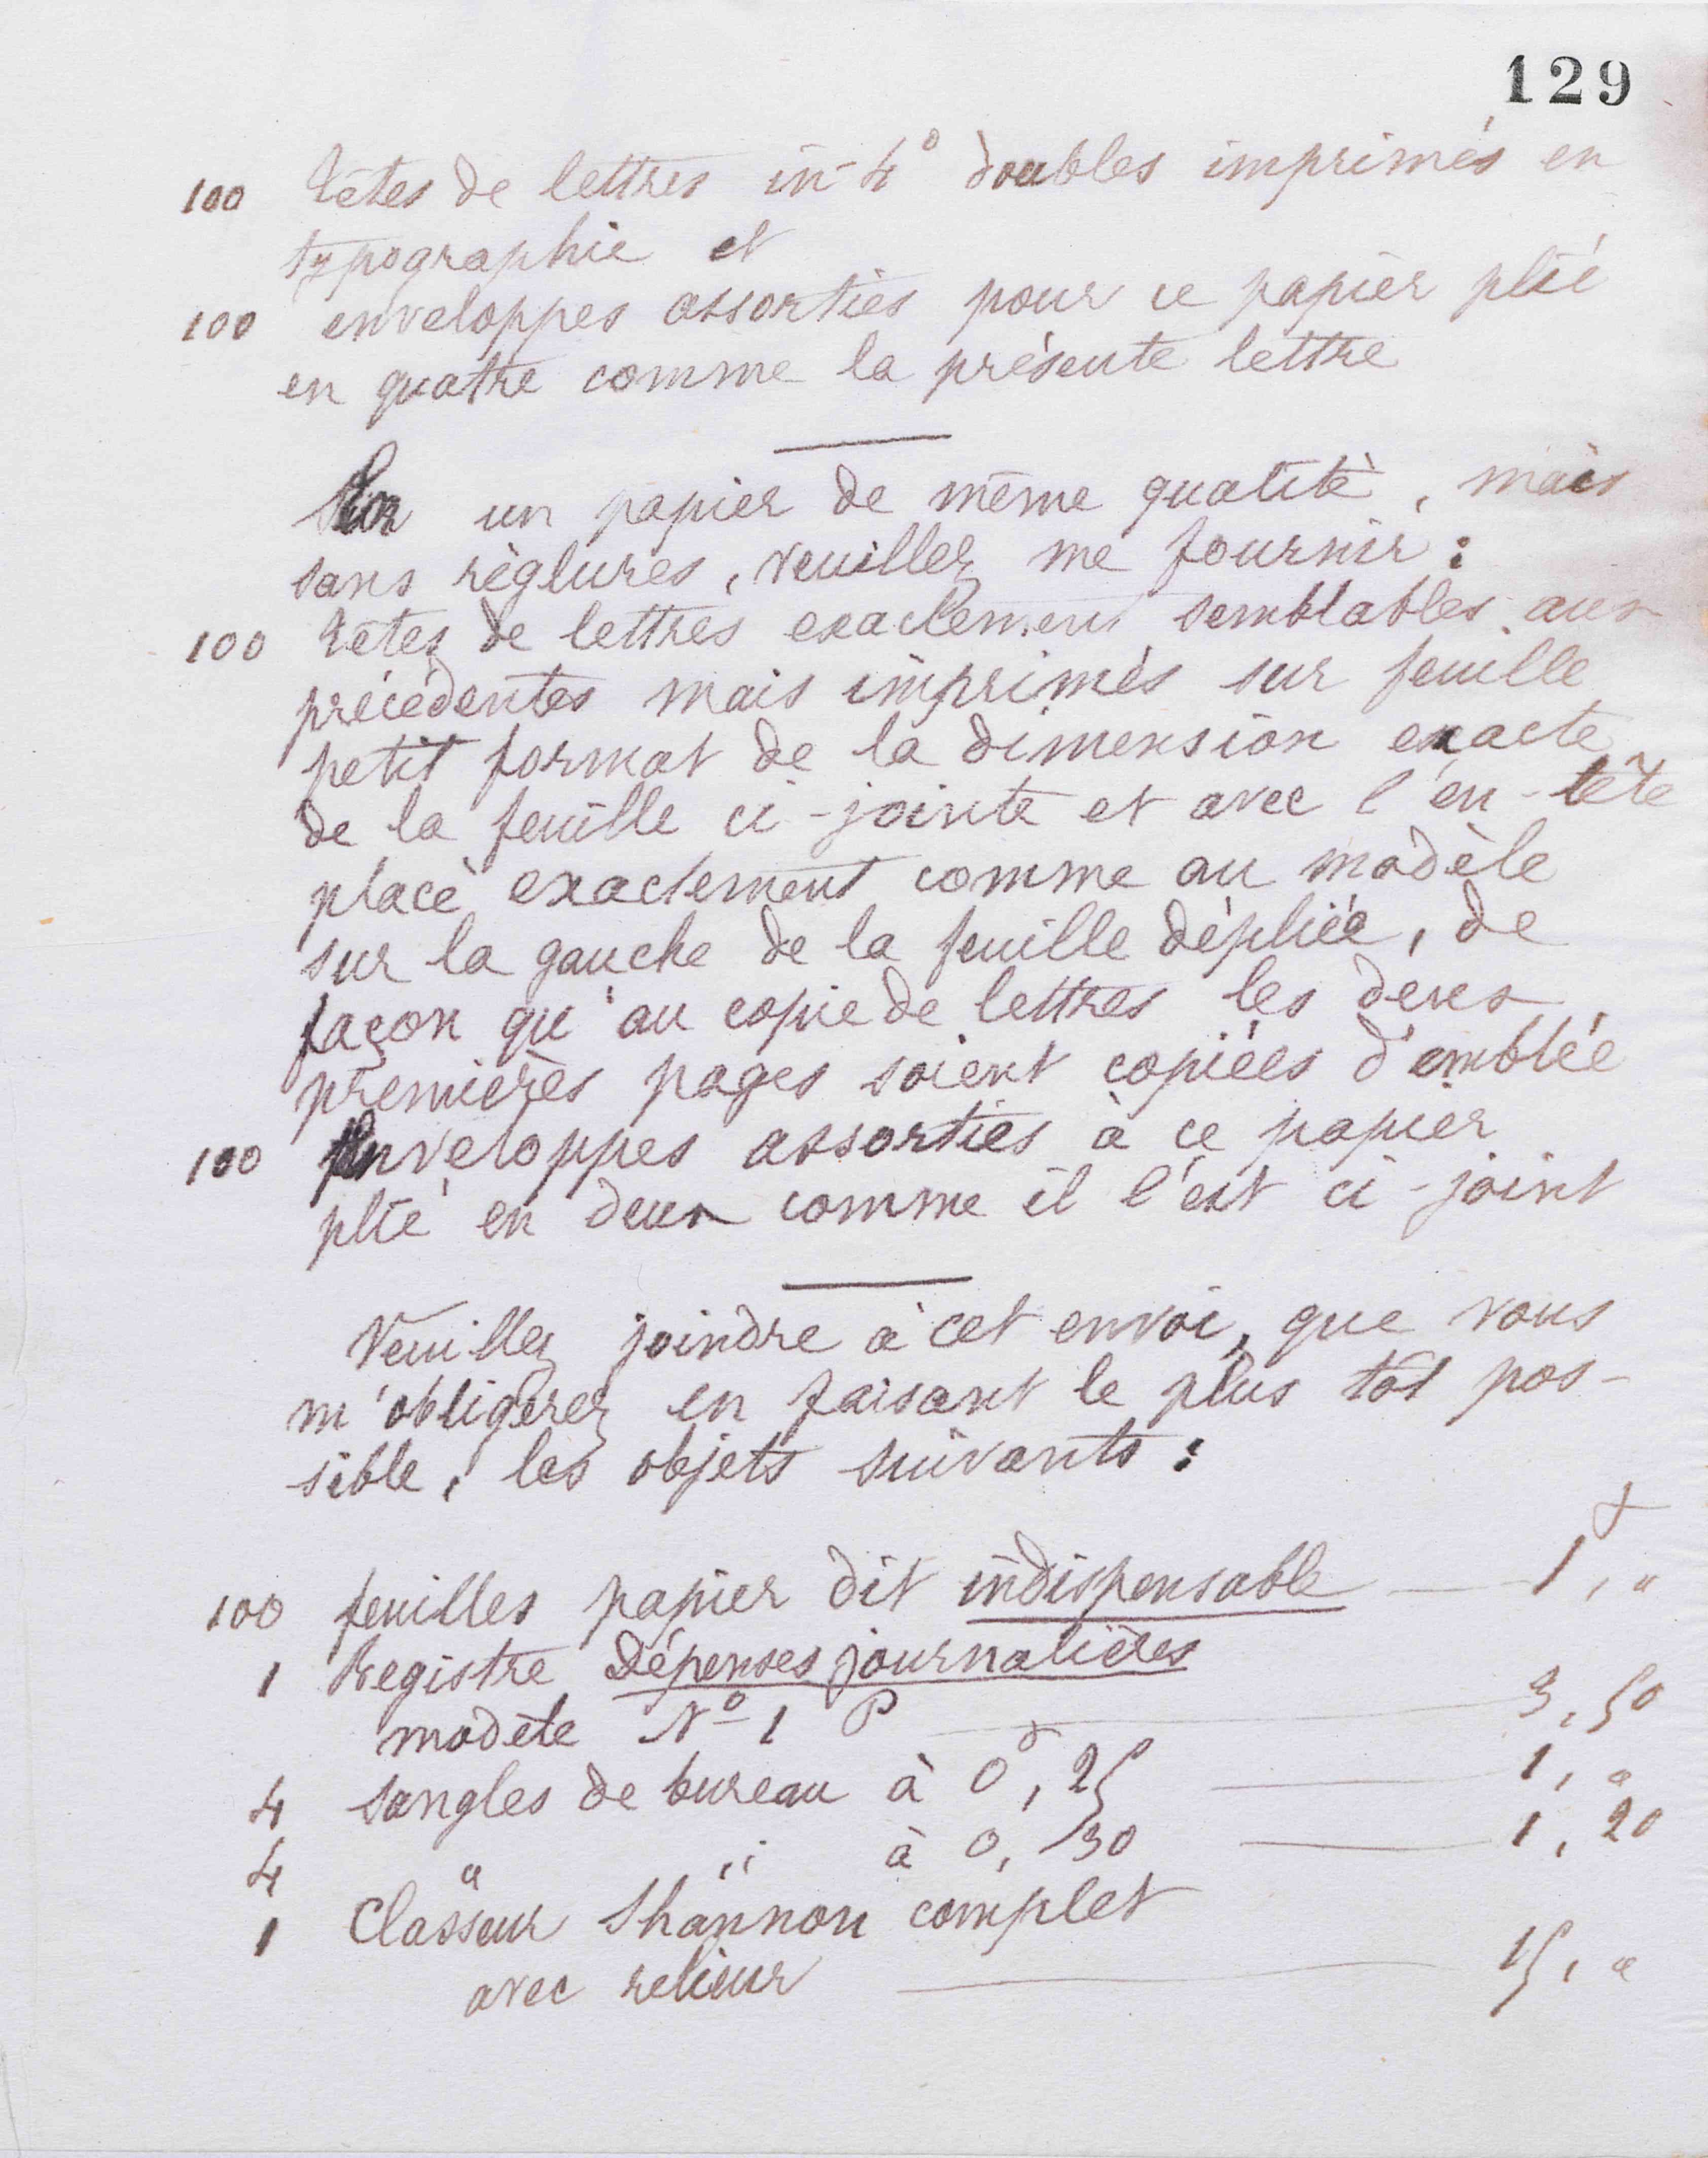 129
100 Têtes de lettres in-4° doubles imprimés en
typographie et
100 enveloppes assorties pour ce papier plié
en quatre comme la présente lettre
Sur un papier de même qualité, mais
sans réglures, veuillez me fournir :
100 Têtes de lettres exactement semblables aux
précédentes mais imprimés sur feuille
petit format de la dimension exacte
de la feuille ci-jointe et avec l'en-tête
placé exactement comme au modèle
sur la gauche de la feuille dépliée, de
façon qu'au copie de lettres les deux
premières pages soient copiées d'emblée
100 Enveloppes assorties à ce papier
plié en deux comme il l'est ci-joint
Veuillez joindre à cet envoi, que vous
m'obligerez en faisant le plus tôt pos-
sible, les objets suivants :
100 feuilles papier dit indispensable 1f, "
1 Registre Dépenses journalières
modèle N° 1 P 3,50
4 sangles de bureau à 0f,25 1, "
4 " " à 0,30 1,20
1 Classeur Shannon complet
avec relieur 15, "